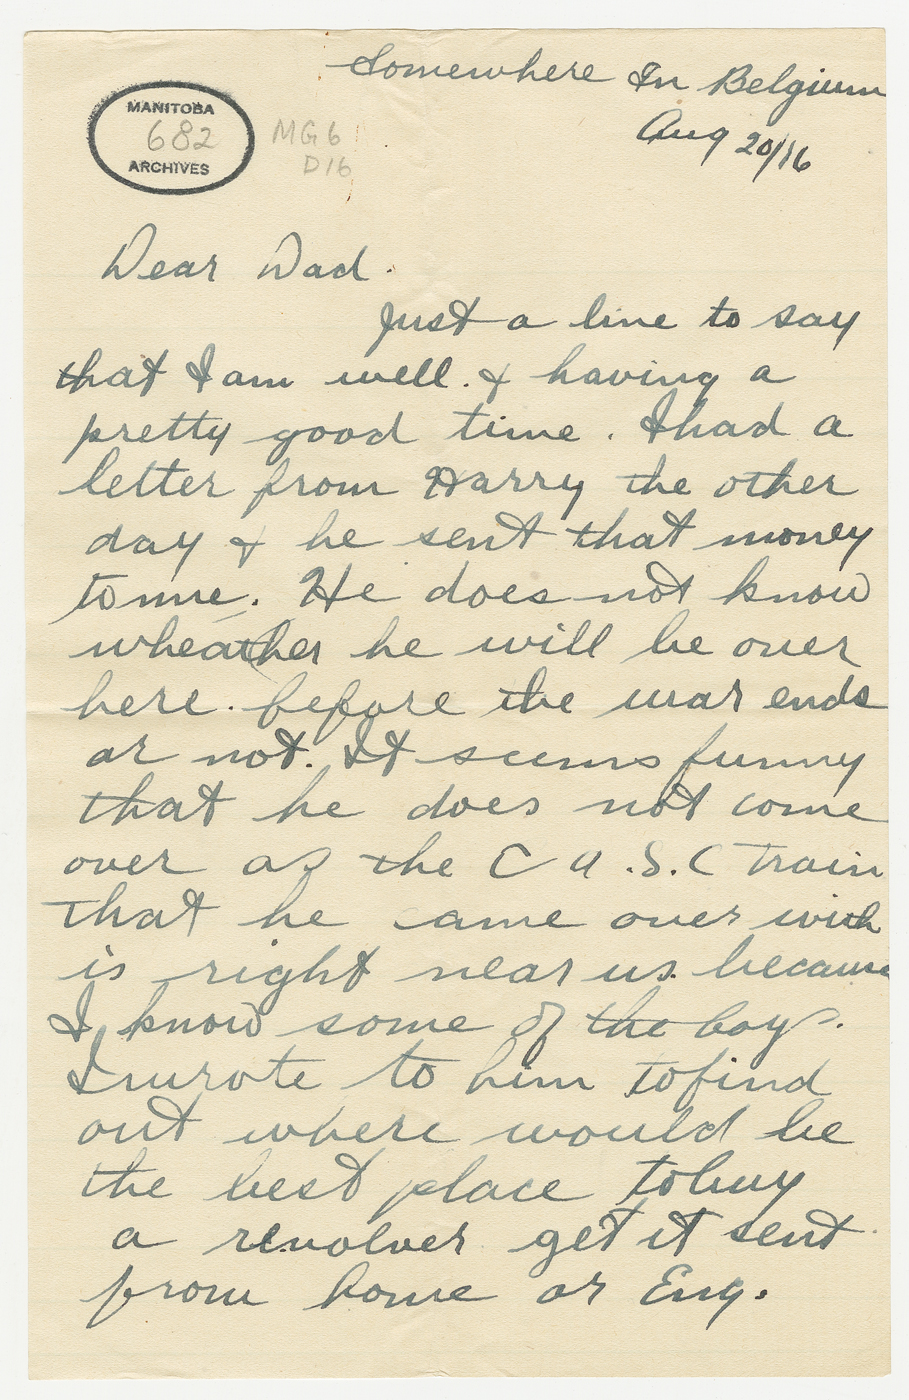 Somewhere In Belgium
Aug 20/16
MANITOBA
682
ARCHIVES
MG6
D16
Dear Dad.
Just a line to say
that I am well. & having a
pretty good time. I had a
letter from Harry the other
day & he sent that money
to me. He does not know
wheather he will be over
here. before the war ends
or not. It seems funny
that he does not come
over as the C A.S.C Train
that he came over with
is right near us. because
I know some of the boys.
I wrote to him to find
out where would be
the best place to buy
a revolver get it sent
from home or Eng.